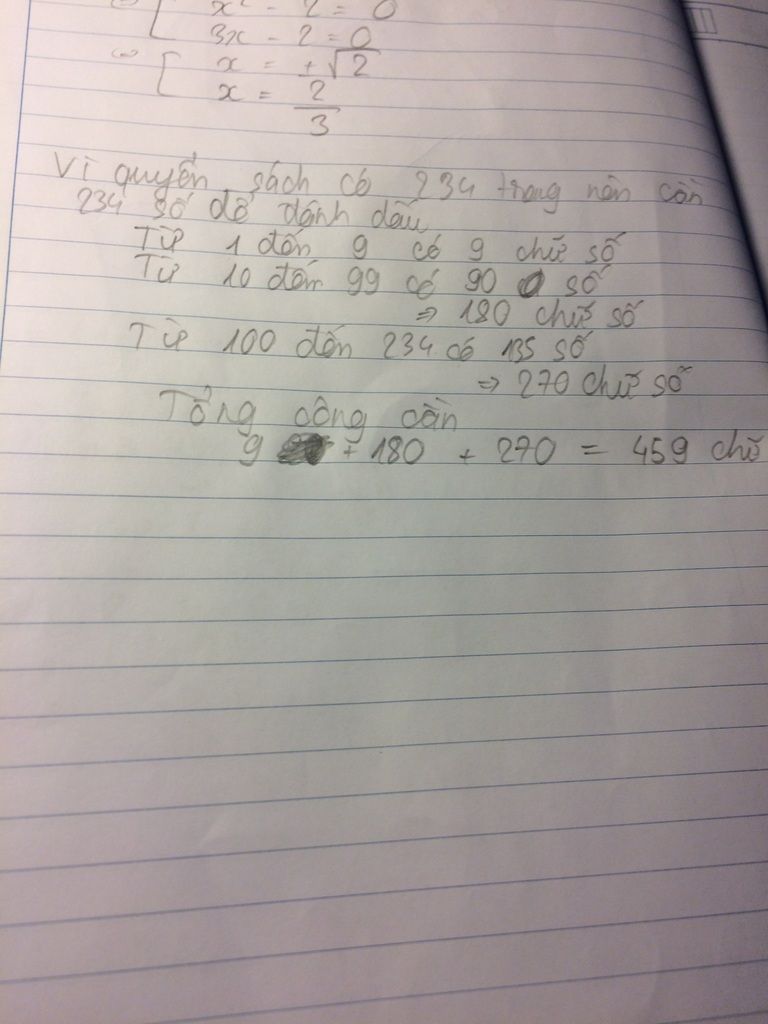 x² - 2 = 0
3x - 2 = 0
x = ±√2
x = 2/3
Vì quyển sách có 234 trang nên cần
234 số để đánh dấu
Từ 1 đến 9 có 9 chữ số
Từ 10 đến 99 có 90 số
⇒ 180 chữ số
Từ 100 đến 234 có 135 số
⇒ 270 chữ số
Tổng cộng cần
9 + 180 + 270 = 459 chữ